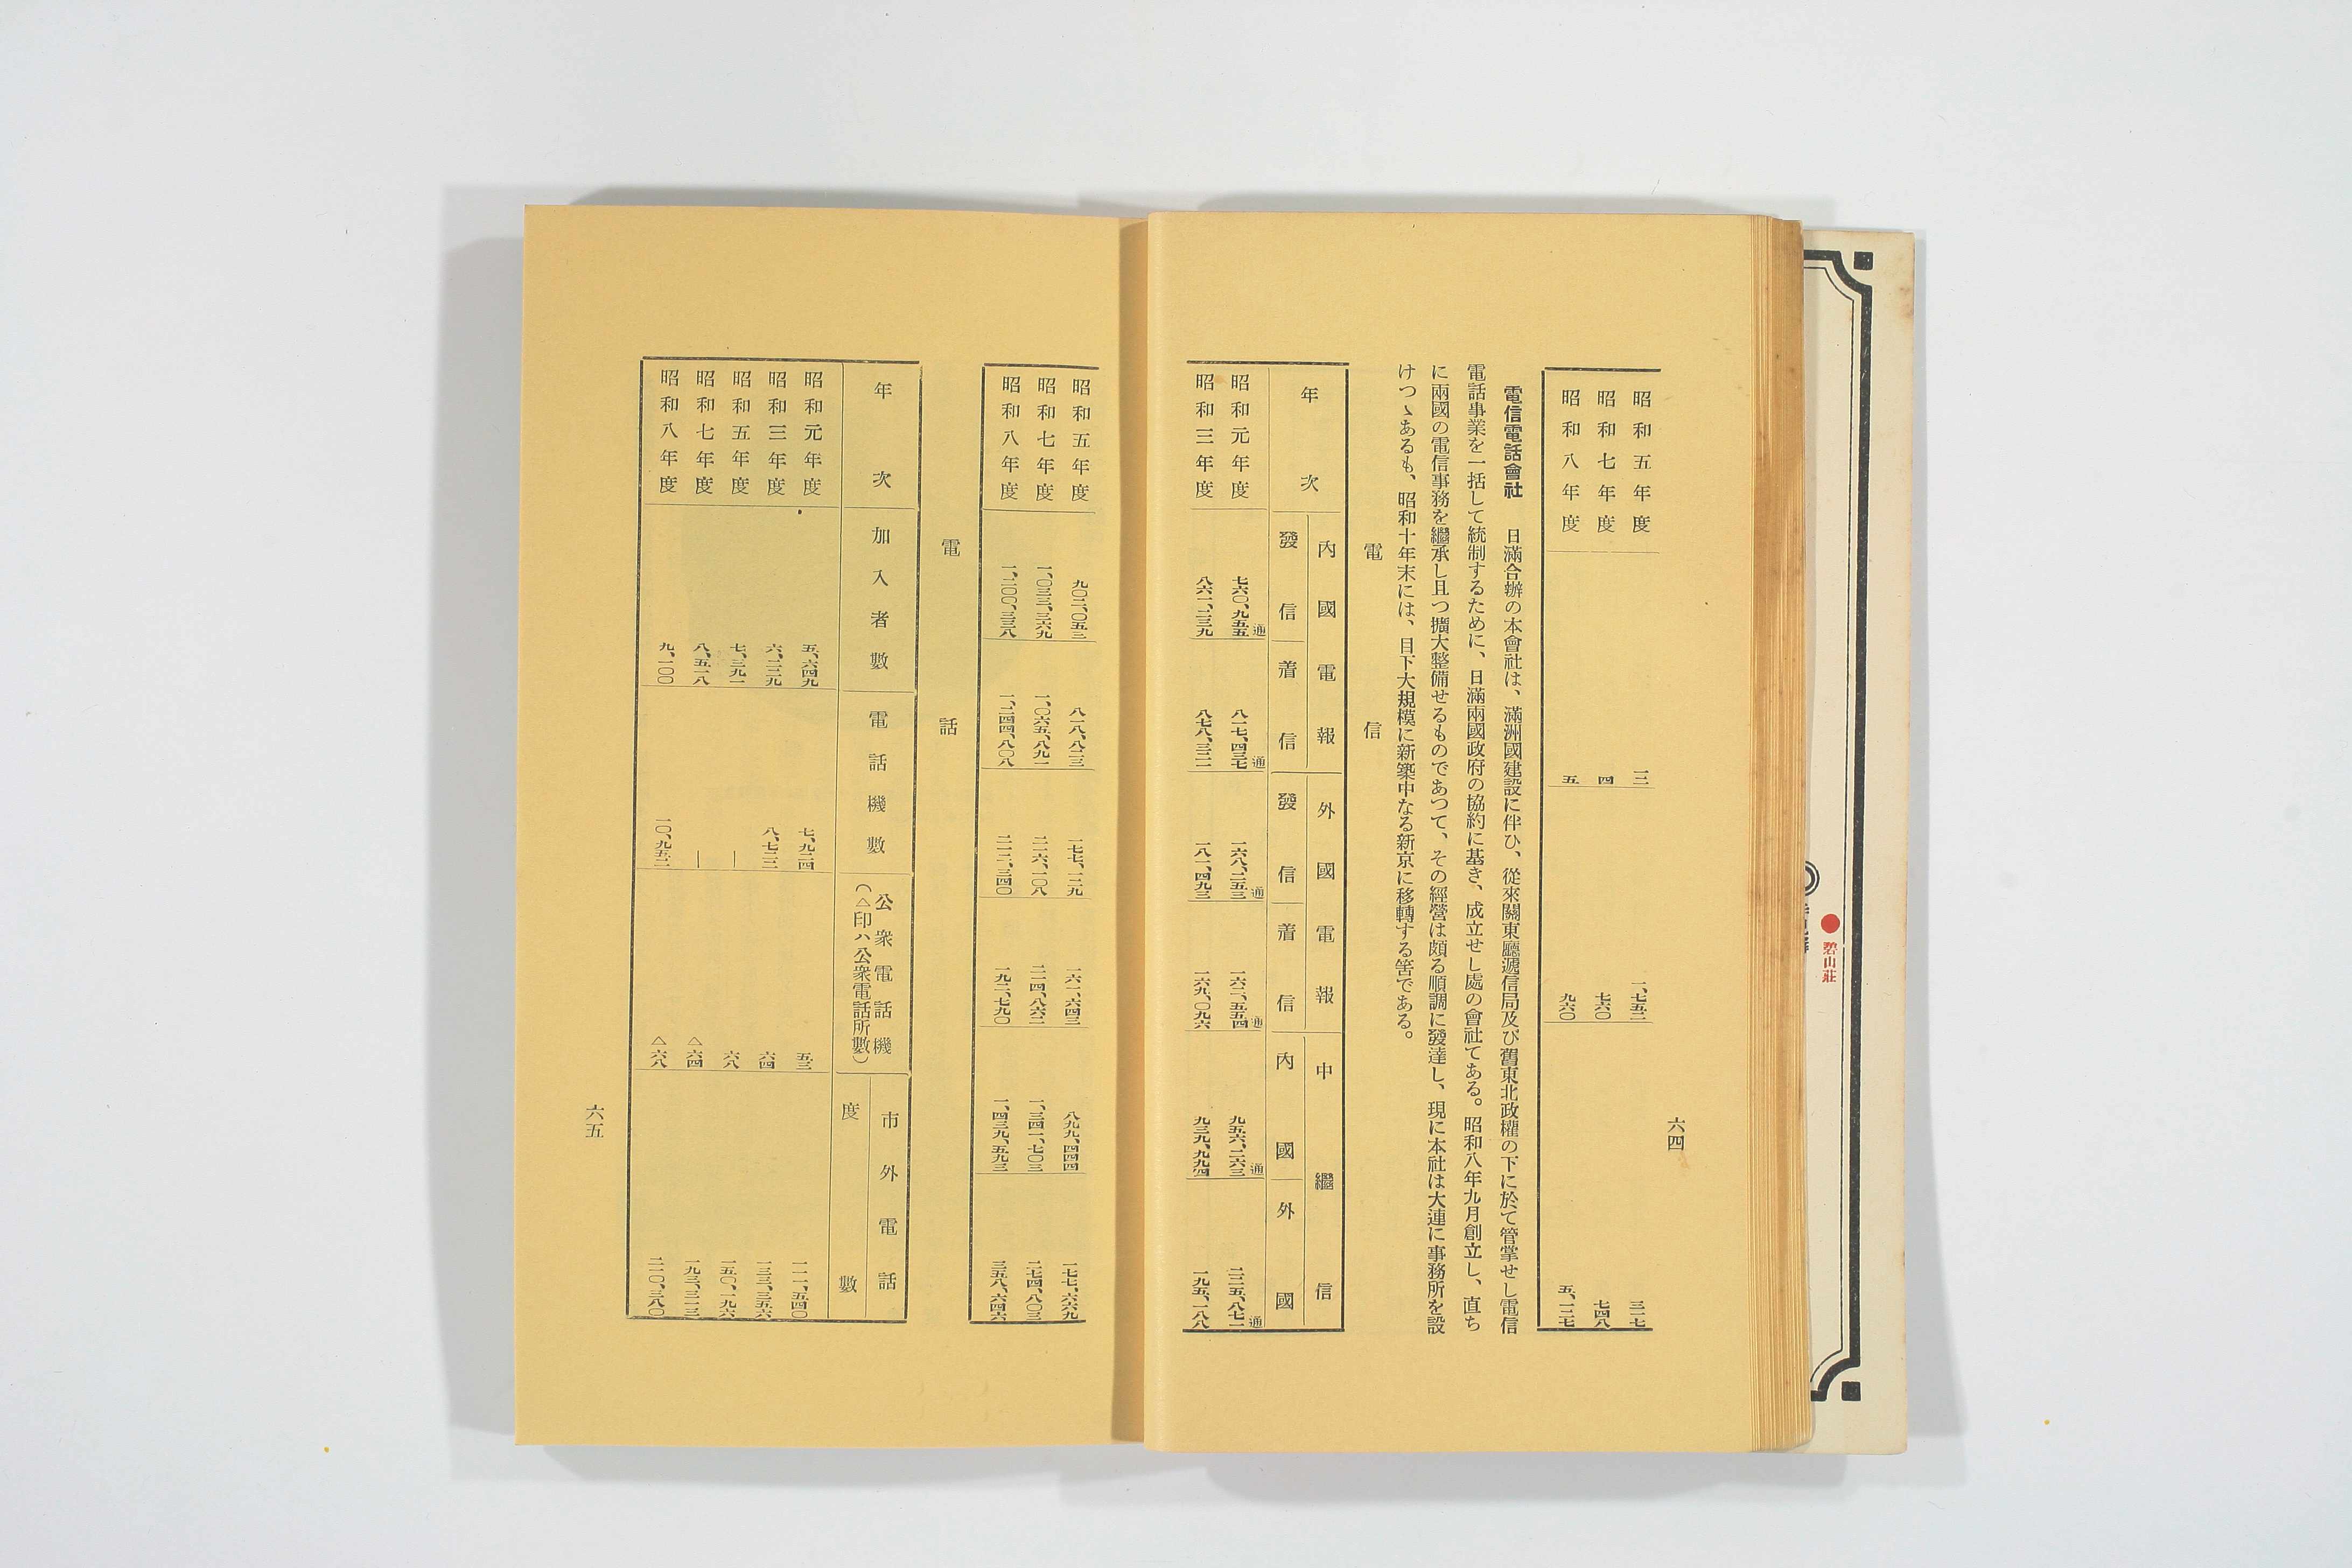 六四
昭和五年度 三 一、七五二 三一七
昭和七年度 四 七六〇 七四八
昭和八年度 五 九六〇 五、一二七
電信電話會社 日滿合辦の本會社は、滿洲國建設に伴ひ、從來關東廳遞信局及び舊東北政權の下に於て管掌せし電信
電話事業を一括して統制するために、日滿兩國政府の協約に基き、成立せし處の會社てある。昭和八年九月創立し、直ち
に兩國の電信事務を繼承し且つ擴大整備せるものであつて、その經營は頗る順調に發達し、現に本社は大連に事務所を設
けつゝあるも、昭和十年末には、目下大規模に新築中なる新京に移轉する筈である。
電信
年次 內國電報 外國電報 中繼信
發信 着信 發信 着信 內國 外國
昭和元年度 七六〇、九五五通 八一七、四三七通 一六八、二五三通 一六二、五五四通 九五六、二六三通 二二五、八七一通
昭和三年度 八六一、二三九 八七八、三二一 一八一、四九三 一六九、〇九六 九三九、九九四 一九五、一八八
昭和五年度 九〇二、〇五三 八一八、八二三 一七七、一二九 一六一、六四三 八九九、四四四 一七七、六六九
昭和七年度 一、〇三三、三六九 一、〇六五、八九一 二二六、一〇八 二一四、八六二 一、三四一、七〇三 二七四、八〇三
昭和八年度 一、二〇〇、三三八 一、二四四、八〇八 二一二、三四〇 一九二、七九〇 一、四三九、五九三 三五八、六四六
電話
年次 加入者數 電話機數 公衆電話機 市外電話
（△印ハ公衆電話所數） 度數
昭和元年度 五、六四九 七、九二四 五三 一一一、五四〇
昭和三年度 六、二二九 八、七二二 六四 一三三、三五六
昭和五年度 七、三九一 — 六八 一五〇、一九六
昭和七年度 八、五一八 — △六四 一九三、三一三
昭和八年度 九、一〇〇 一〇、九五二 △六八 二一〇、三八〇
六五
碧山莊